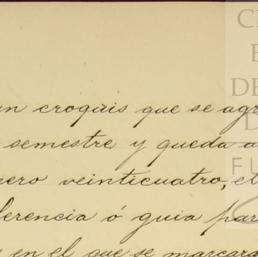 un croquis que se agr
semestre y queda a
nero veinticuatro, el
ferencia ó guia par
en el que se marcara